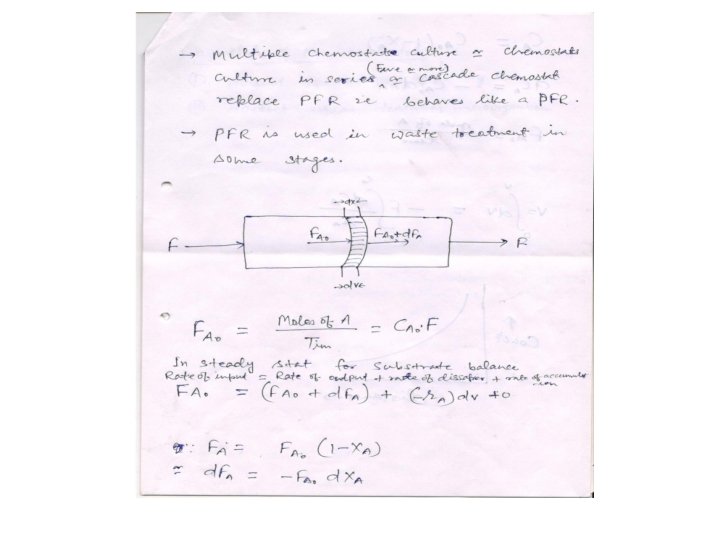 → Multiple chemostats culture ≃ chemostats
culture in series (Five or more) ≃ cascade chemostat
replace PFR ie behaves like a PFR.
→ PFR is used in waste treatment in
some stages.
→dx←
F → FA₀ FA₀+dFA → F
→dv←
FA₀ = Moles of A / Tim = CA₀.F
In steady stat for substrate balance
Rate of input = Rate of output + rate of dissaper, + rate of accumulation
FA₀ = (FA₀ + dFA) + (-rA)dv +0
∵ FA = FA₀ (1-XA)
≃ dFA = -FA₀ dXA